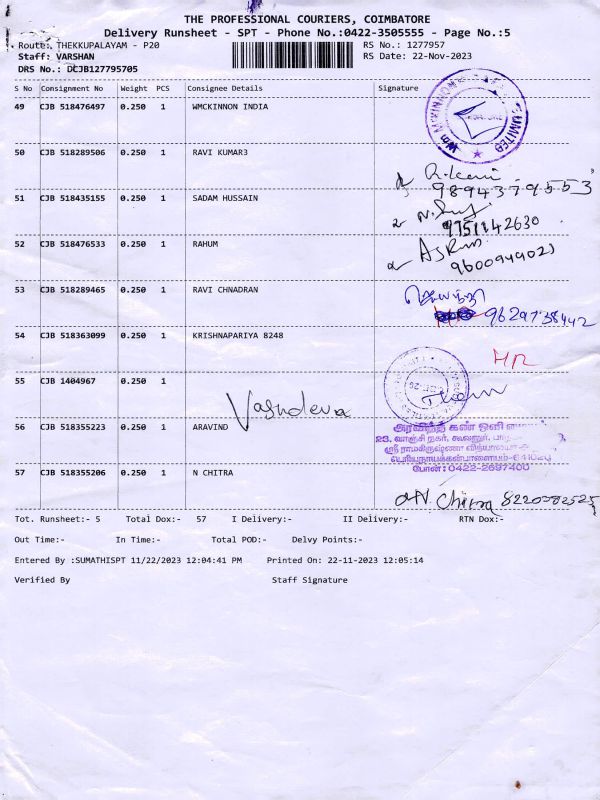 THE PROFESSIONAL COURIERS, COIMBATORE
Delivery Runsheet - SPT - Phone No.:0422-3505555 - Page No.:5
Route: THEKKUPALAYAM - P20
RS No.: 1277957
Staff: VARSHAN
RS Date: 22-Nov-2023
DRS No.: DCJB127795705
S No Consignment No Weight PCS Consignee Details Signature
49 CJB 518476497 0.250 1 WMCKINNON INDIA
50 CJB 518289506 0.250 1 RAVI KUMAR3
9894379553
51 CJB 518435155 0.250 1 SADAM HUSSAIN
9751142630
52 CJB 518476533 0.250 1 RAHUM
9600949023
53 CJB 518289465 0.250 1 RAVI CHNADRAN
9629738442
54 CJB 518363099 0.250 1 KRISHNAPARIYA 8248
55 CJB 1404967 0.250 1
Vasudeva
56 CJB 518355223 0.250 1 ARAVIND
அரவிந்த் கண் ஒளி
23, வாஞ்சி நகர், கூவனூர்,
ஸ்ரீ ராமகிருஷ்ணா வித்யாலயா
பெரியநாயக்கன்பாளையம்-641020
போன் : 0422-2697400
57 CJB 518355206 0.250 1 N CHITRA
N. Chitra 8220082525
Tot. Runsheet:- 5 Total Dox:- 57 I Delivery:- II Delivery:- RTN Dox:-
Out Time:- In Time:- Total POD:- Delvy Points:-
Entered By :SUMATHISPT 11/22/2023 12:04:41 PM Printed On: 22-11-2023 12:05:14
Verified By Staff Signature